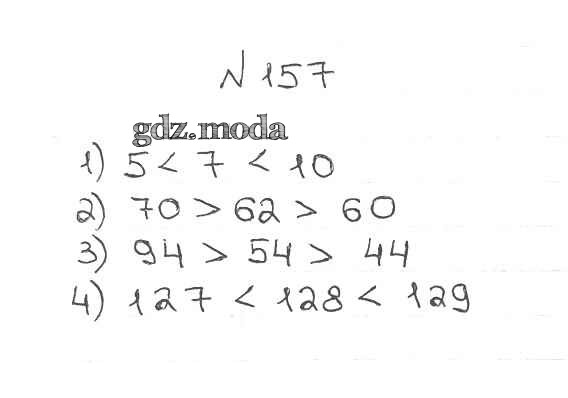 N 157
gdz.moda
1) 5 < 7 < 10
2) 70 > 62 > 60
3) 94 > 54 > 44
4) 127 < 128 < 129